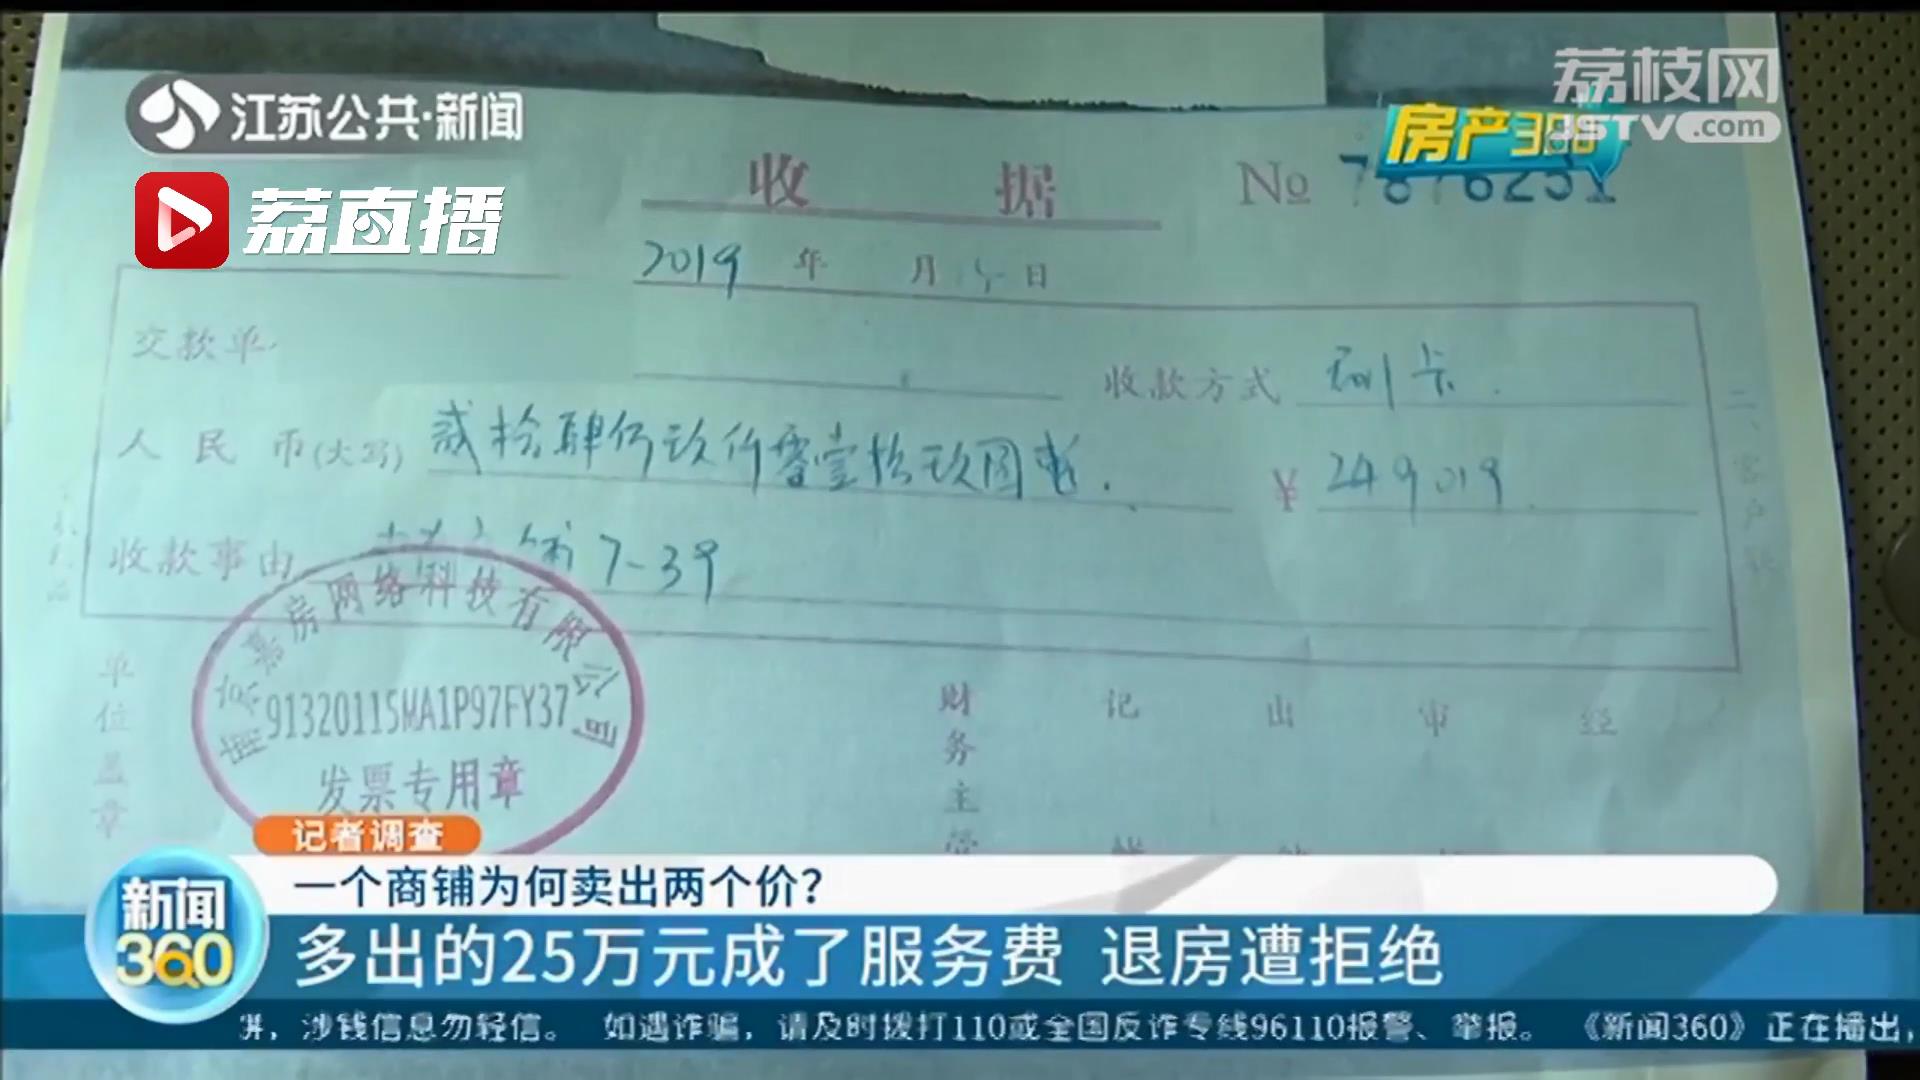 荔枝网
JSTV.com
江苏公共·新闻
房产
荔直播
收据 №
2019年 月 日
交款单
收款方式 刷卡
人民币(大写) 贰拾肆仟玖仟零壹拾玖圆
¥ 249019
收款事由 7-39
嘉房网络科技有限公司
91320115MA1P97FY37
发票专用章
单位盖章
财务主管 记 出 审 经
记者调查
一个商铺为何卖出两个价?
新闻360
多出的25万元成了服务费 退房遭拒绝
涉钱信息勿轻信。 如遇诈骗,请及时拨打110或全国反诈专线96110报警、举报。 《新闻360》正在播出,